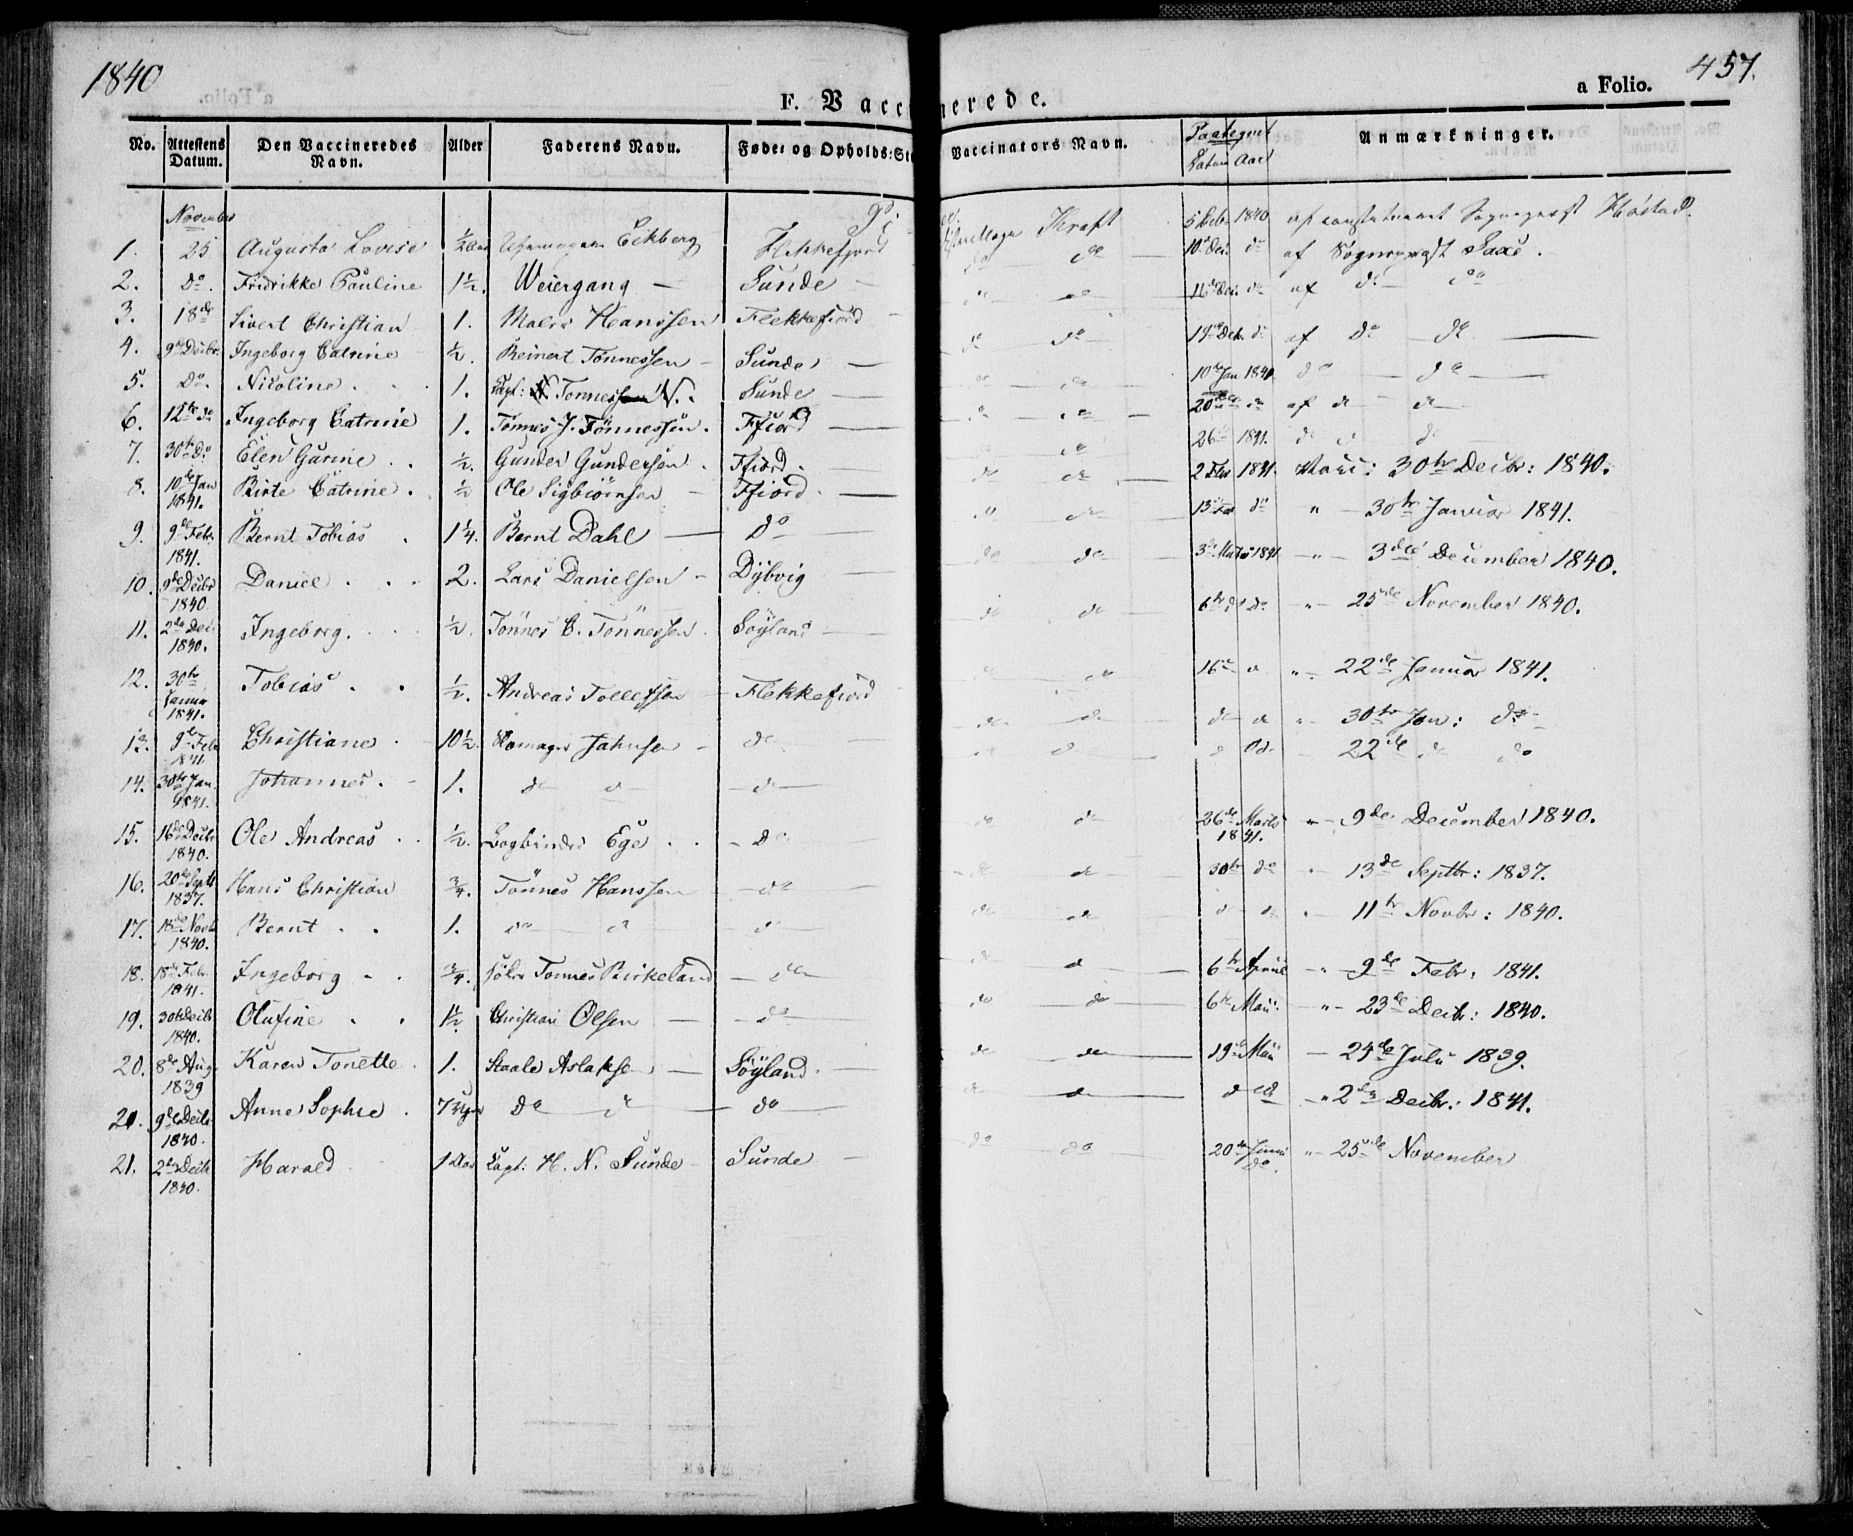 1840
457.
a Folio.
F. Vaccinerede.
No. Attestens Datum. Den Vaccineredes Navn. Alder Faderens Navn. Føde: og Opholds: St Vaccinators Navn. Paategnet Datum Aar Anmærkninger.
November
1. 25 Augusta Lovise ½ Aar Eckberg Flekkefjord Kraft 5 Deb 1840 af Sognepræst Høstad.
2. Do. Fridrikke Pauline 1½. Weiergang — Sunde — do do 10 Dec. do af Sognepræst Saxe.
3. 18de Sivert Christian 1. Maler Hanssen Flekkefiord do do 16de Dec. do af do — do
4. 9de Decbr. Ingeborg Catrine ½. Reinert Tönnessen — Sunde — do do 19de Deb. do af Do — do —
5. Do. Nicoline . . 1. Capt: Tonnessen N. Sunde — do do 10de Jan 1840 do — do —
6. 12te do Ingeborg Catrine 1. Tönnes J. Tönnessen. Ffiord — do do 20de do af do — do
7. 30te Do Elen Gurine . . ½. Gunder Gundersen . Ffiord. do 26 1841. do do
8. 10de Jan 1841. Birte Catrine . ½ Ole Sigbiörnsen — Ffiord. — do do 2 Feb 1841. Vacc: 30te Decbr: 1840.
9. 9de Febr. 1841. Bernt Tobias . 1¼. Bernt Dahl — Do — do 13 Feb do " — 30te Januar 1841.
10. 9de Decbr 1840. Daniel . . . 2. Lars Danielsen — Dybvig — do do 3de Marts 1841 — " — 3die December 1840.
11. 2de Dec. 1840. Ingeborg. . . ½. Tönnes C. Tönnessen . Söyland — do do 6te do do " — 25de November 1840.
12. 30te Januar 1841. Tobias . . ½. Andreas Tollefsen — Flekkefiord do 16 " — 22de Januar 1841.
13. 9de Feb 1841 Christiane . 10½. Jahnsen — do do do do " — 30te Jan: do
14. 30te Jan 1841. Johannes . — 1. do do — do — do do do — 22de do do
15. 16de Decbr 1840. Ole Andreas . . ½. Bogbinder Ege . . — Do do do 26de Marts 1841. " — 9de December 1840.
16. 20de Septb 1837. Hans Christian ¾. Tönnes Hanssen — do — do do 30te do " — 13de Septbr: 1837.
17. 18de Novb 1840. Bernt . . 1. do do — do do do do do " — 11te Novbr: 1840.
18. 18de Febr. 1841. Ingeborg . . ¾. Tönnes Birkeland — do — do do — 6te April " — 9de Febr: 1841.
19. 30te Decbr 1840. Olufine . . 1½. Christian Olsen — do — do do 6te Mai: " — 23de Decbr: 1840.
20. 8de Aug. 1839 Karen Tonette . 1. Staale Aslaksen — Söyland. — do do 19de Mai — 24de Juli 1839.
20. 9de Decbr 1840. Anne Sophie . 7 Uger do do — do — do do do do — " 2den Decbr.: 1841.
21. 2de Decbr 1840. Harald 1 Aar Capt: H. N. Sunde — Sunde — do do 20de Juni do. " — 25de November